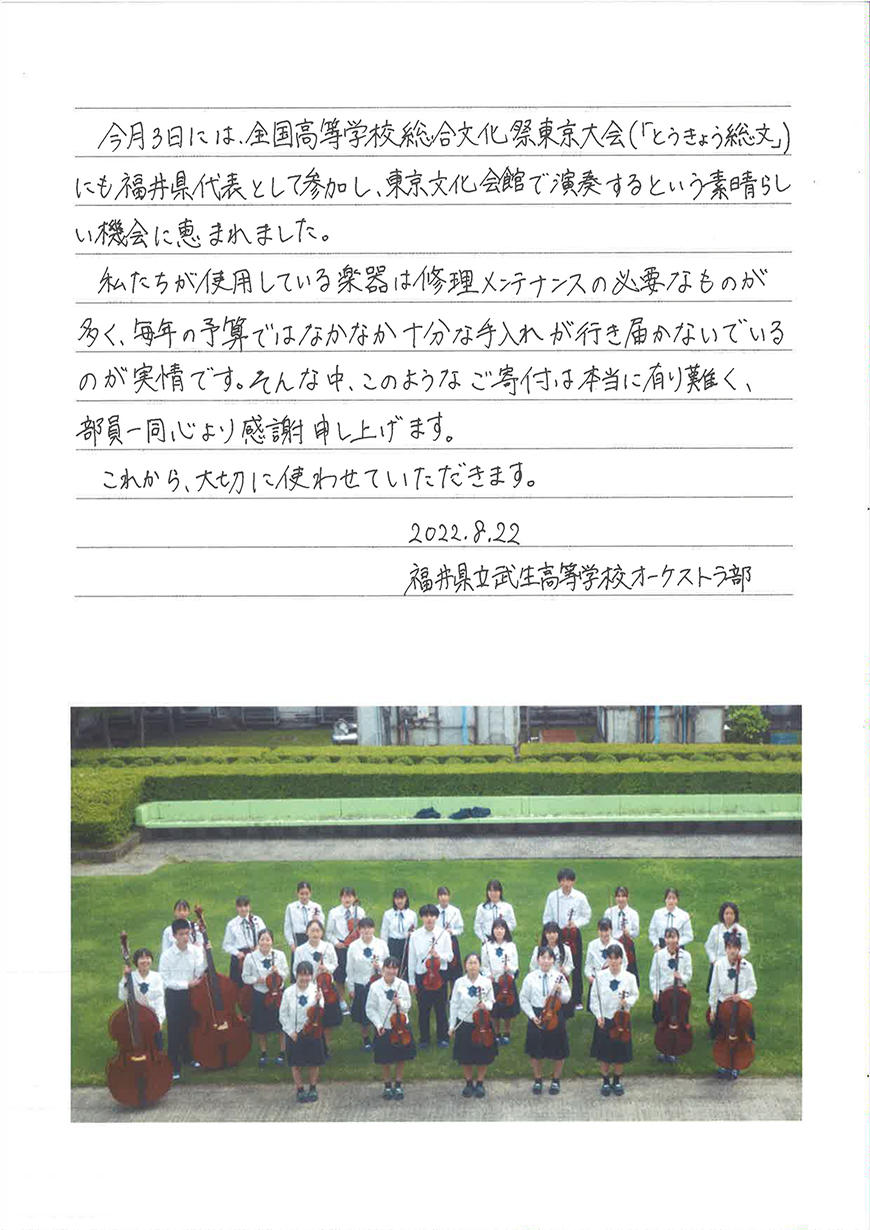 今月3日には、全国高等学校総合文化祭東京大会(「とうきょう総文」)
にも福井県代表として参加し、東京文化会館で演奏するという素晴らし
い機会に恵まれました。
私たちが使用している楽器は修理メンテナンスの必要なものが
多く、毎年の予算ではなかなか十分な手入れが行き届かないでいる
のが実情です。そんな中、このようなご寄付は本当に有り難く、
部員一同心より感謝申し上げます。
これから、大切に使わせていただきます。
2022.8.22
福井県立武生高等学校オーケストラ部